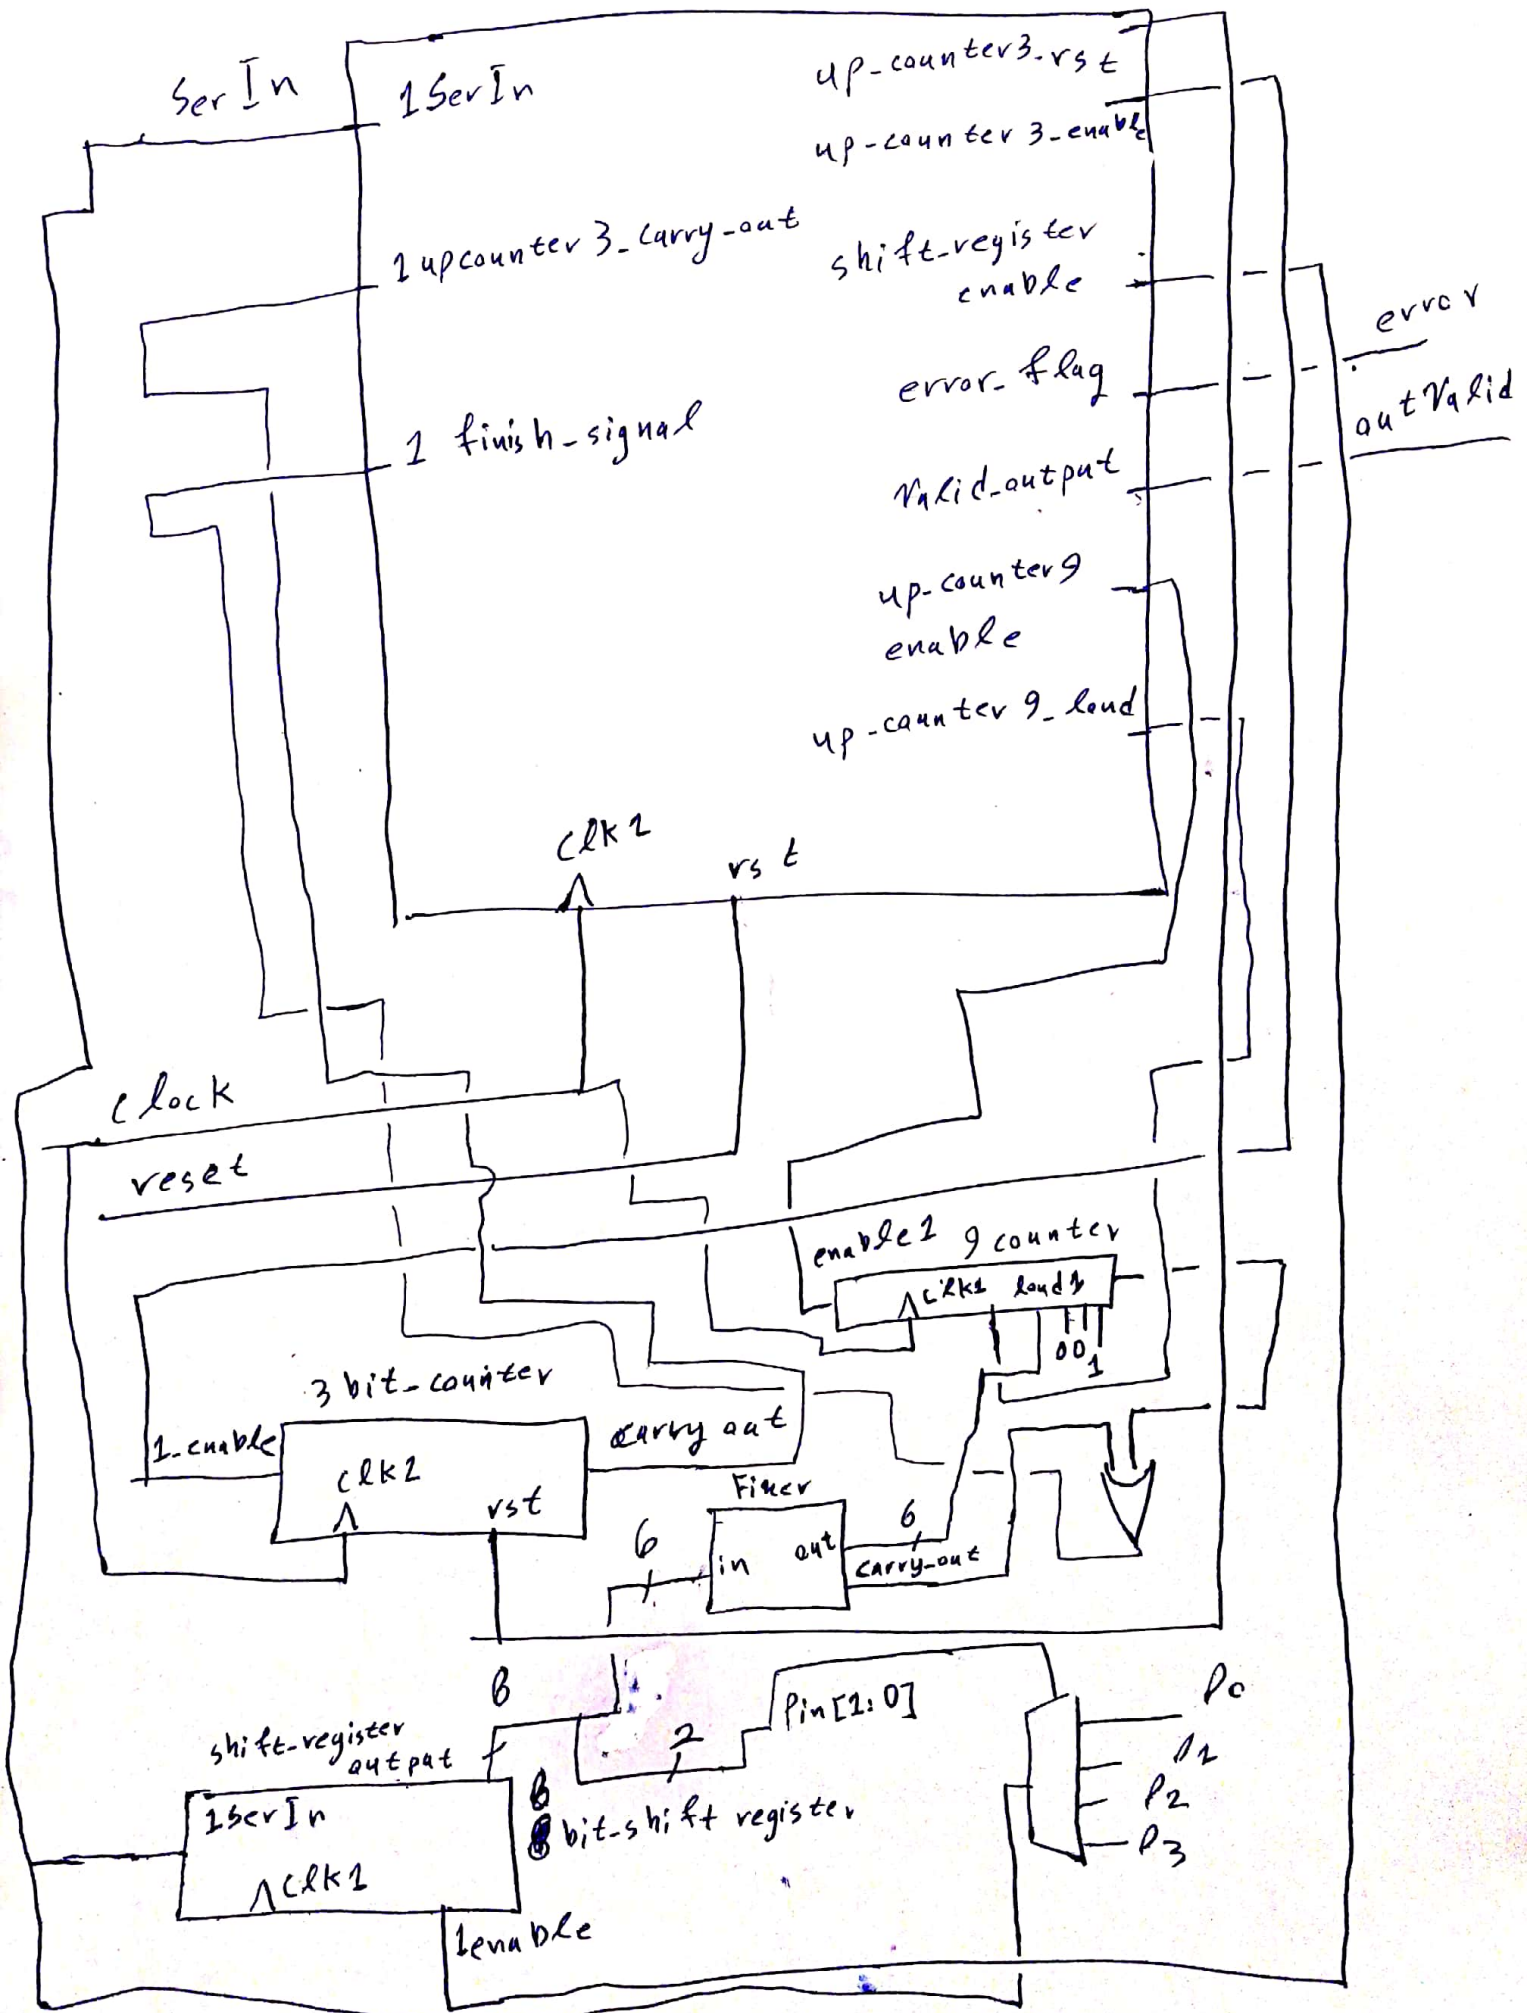 SerIn
1 SerIn
up-counter3-rst
up-counter 3-enable
1 upcounter 3-carry-out
shift-register
enable
error
error-flag
outValid
1 finish-signal
Valid-output
up-counter9
enable
up-counter 9-load
clk 1
rst
clock
reset
enable1 9 counter
clk1 load1
0 0 1
3 bit-counter
1-enable
carry out
clk1
rst
6
in out
6
carry-out
6
Pin[1:0]
P0
shift-register
output
2
P1
6
P2
1SerIn
bit-shift register
P3
clk1
1enable